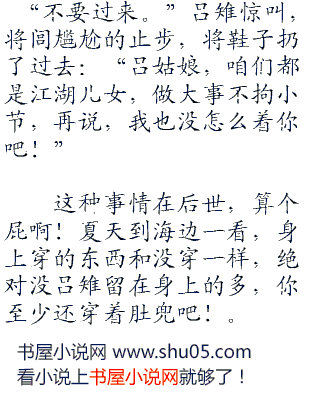 “不要过来。”吕雉惊叫，
将闾尴尬的止步，将鞋子扔
了过去：“吕姑娘，咱们都
是江湖儿女，做大事不拘小
节，再说，我也没怎么着你
吧！”
这种事情在后世，算个
屁啊！夏天到海边一看，身
上穿的东西和没穿一样，绝
对没吕雉留在身上的多，你
至少还穿着肚兜吧！。
书屋小说网 www.shu05.com
看小说上书屋小说网就够了！